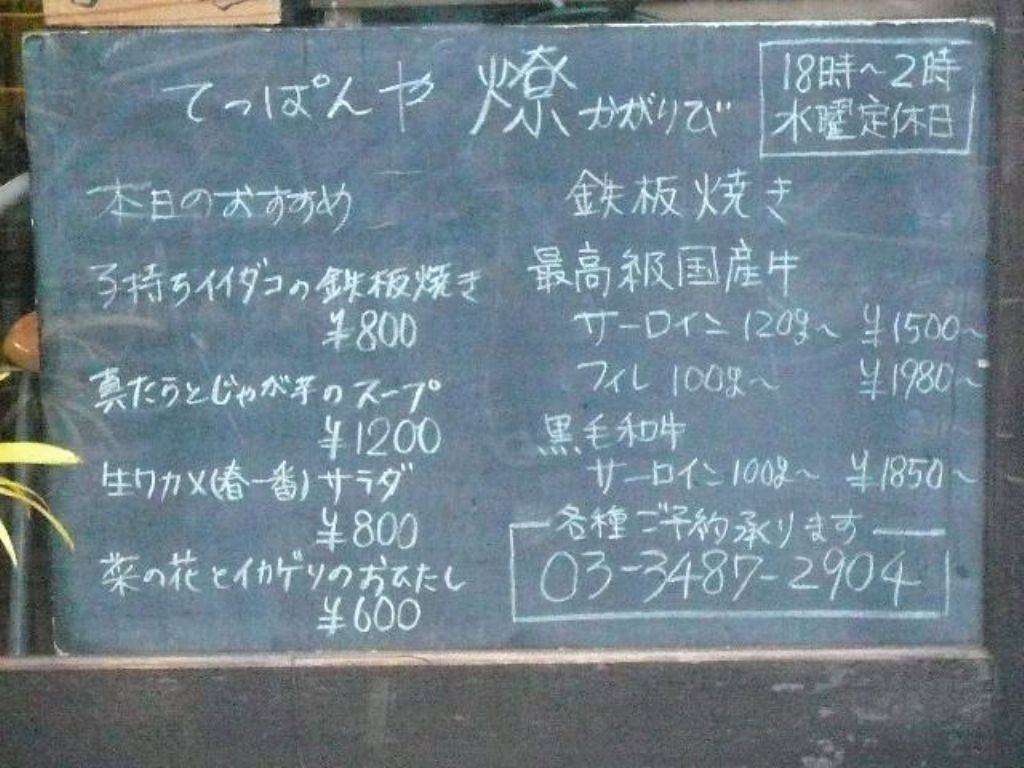 てっぱんや 燎 かがりび
18時～2時
水曜定休日
本日のおすすめ
子持ちイイダコの鉄板焼き
¥800
真たらとじゃが芋のスープ
¥1200
生ワカメ(春一番)サラダ
¥800
菜の花とイカゲソのおひたし
¥600
鉄板焼き
最高級国産牛
サーロイン 120g～ ¥1500～
フィレ 100g～ ¥1980～
黒毛和牛
サーロイン 100g～ ¥1850～
各種ご予約承ります
03-3487-2904